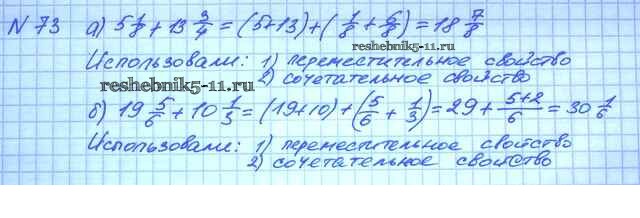 N 73 а) 5 1/8 + 13 3/4 = (5+13) + (1/8 + 6/8) = 18 7/8
reshebnik5-11.ru
Использовали: 1) переместительное свойство
2) сочетательное свойство
reshebnik5-11.ru
б) 19 5/6 + 10 1/3 = (19+10) + (5/6 + 1/3) = 29 + 5+2/6 = 30 1/6
Использовали: 1) переместительное свойство
2) сочетательное свойство